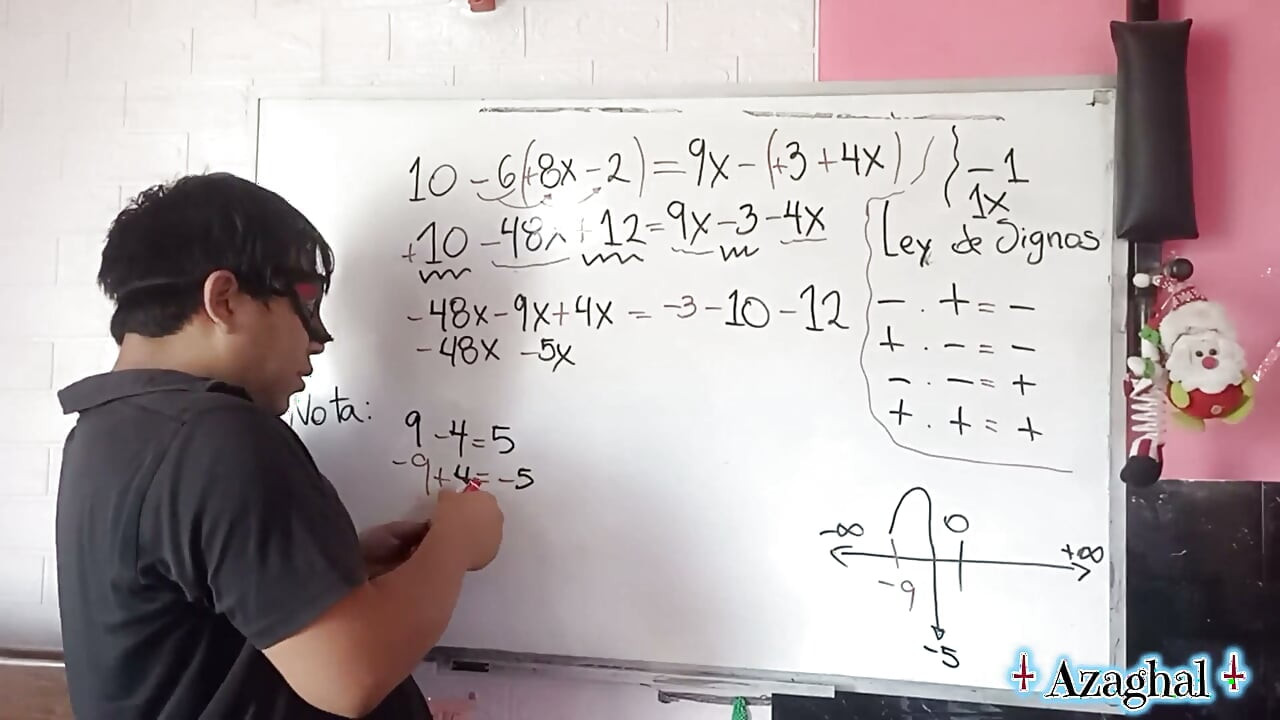 10 - 6(+8x - 2) = 9x - (+3 + 4x) / } -1
1x
+10 - 48x + 12 = 9x - 3 - 4x
-48x - 9x + 4x = -3 - 10 - 12
-48x - 5x
Ley de Signos
- . + = -
+ . - = -
- . - = +
+ . + = +
Nota:
9 - 4 = 5
-9 + 4 = -5
-∞ 0 +∞
-9
-5
Azaghal